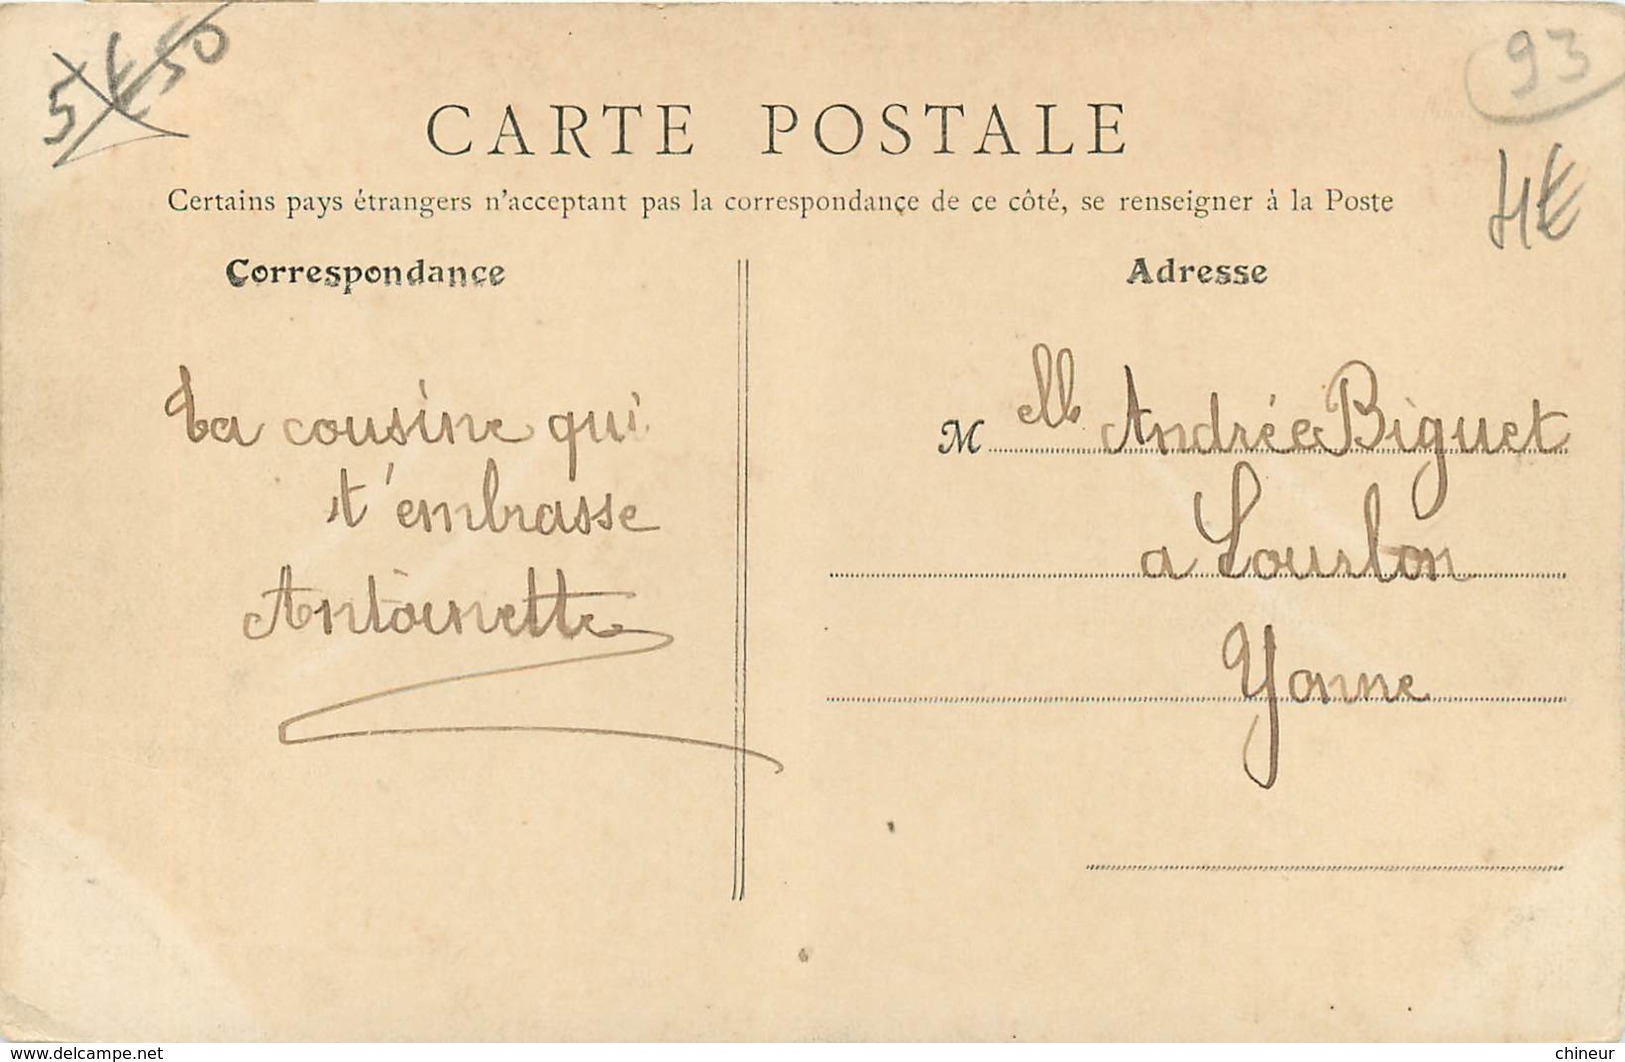 5€50
93
CARTE POSTALE
4€
Certains pays étrangers n'acceptant pas la correspondance de ce côté, se renseigner à la Poste
Correspondance
Ta cousine qui
t'embrasse
Antoinette
Adresse
Melle Andrée Biguet
a Lourlon
Yonne
www.delcampe.net
chineur